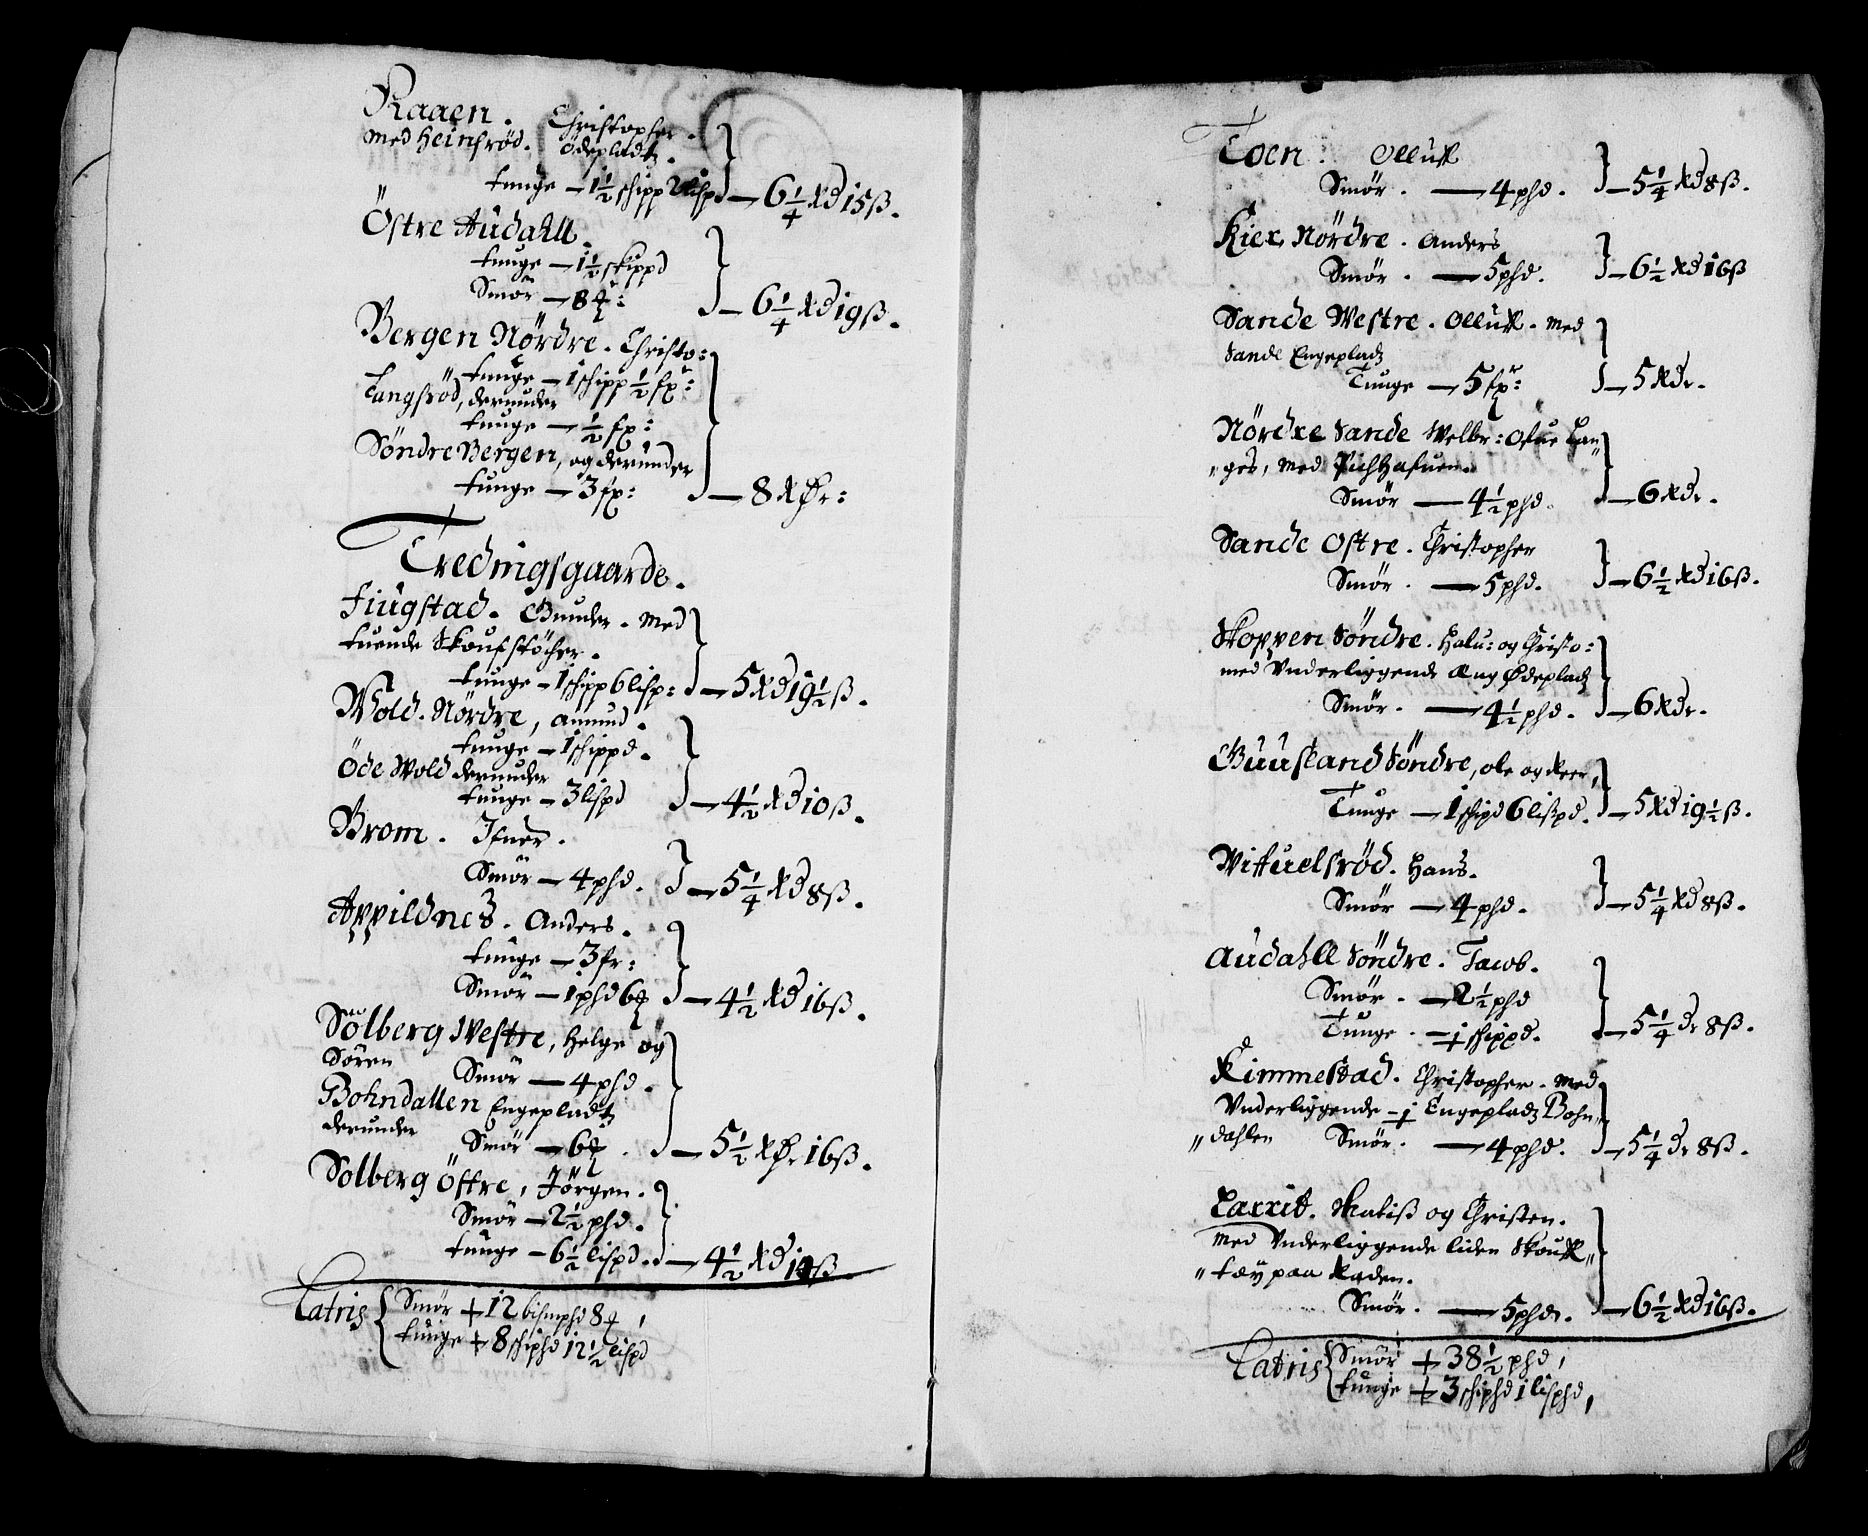 Raaen. Christopher.
med Heinsrød. Ödepladtz.
tunge — 1½ schipp 2 lisp — 6¼ Rd 15ß.
Östre Audahll.
tunge — 1½ skippd
Smör — 8 — 6¼ Rd 19ß.
Bergen Nördre. Christo:
tunge — 1 schipp ½ fp:
Langsröd, derunder
tunge — ½ fp:
Söndre Bergen, og derunder
tunge — 3 fp: — 8 Rdr:
Tredingsgaarde.
Fiugstad. Gunder. med
tuende Skoufstöcher.
tunge — 1 schipp 6 lisp: — 5 Rd 19½ß.
Wold. Nördre, Amund.
tunge — 1 schippd.
Öde Wold derunder
tunge — 3 lispd — 4½ Rd 10ß.
Brom. Ifuer.
Smör — 4 phd. — 5¼ Rd 8ß.
Appildnes. Anders.
tunge — 3 fr:
Smör — 1 phd 6 — 4½ Rd 16ß.
Sölberg Westre, Helge og
Sören Smör — 4 phd.
Bohndallen Engepladtz
derunder Smör — 6 — 5½ Rdr 16ß.
Solberg Östre, Jörgen.
Smör — 2½ phd.
tunge — 6½ lispd. — 4½ Rd 14ß.
Latris Smör + 12 bismphd 8
tunge + 8 schiphd 12½ lispd
Toen. Olluff
Smör. — 4 phd. — 5¼ Rd 8ß.
Kiex Nördre. Anders
Smör. — 5 phd. — 6½ Rd 16ß
Sande Westre. Olluff. med
Sande Engepladtz
Tunge — 5 fp: — 5 Rdr.
Nördre Sande Welbr: Ofue Lan
„ges, med Pichhafuen.
Smör — 4½ phd. — 6 Rdr.
Sande Ostre. Christopher
Smör. — 5 phd. — 6½ Rd 16ß.
Skoppen Söndre. Halu: og Christo:
med Vnderliggende Aug Ødepladtz
Smör. — 4½ phd. — 6 Rdr.
Guusland Söndre, ole og Peer,
Tunge — 1 schipd 6 lißpd. — 5 Rd 19½ß.
Wittuelsröd. Hans.
Smör — 4 phd. — 5¼ Rd 8ß.
Audahll Söndre. Jacob.
Smör. — 2½ phd
Tunge. — 1 schippd. — 5¼ dr 8ß.
Kimmestad. Christopher. med
Vnderliggende — 1 Engepladtz Bohn
„dahlen Smör. — 4 phd. — 5¼ dr 8ß.
Larrit. Matiß og Christen.
med Vnderliggende liden Skouff„
„ paa Raden.
Smör. — 5 phdr. — 6½ Rd 16ß.
Latris Smör + 38½ phd,
tunge + 3 schiphd 1 lisphd,